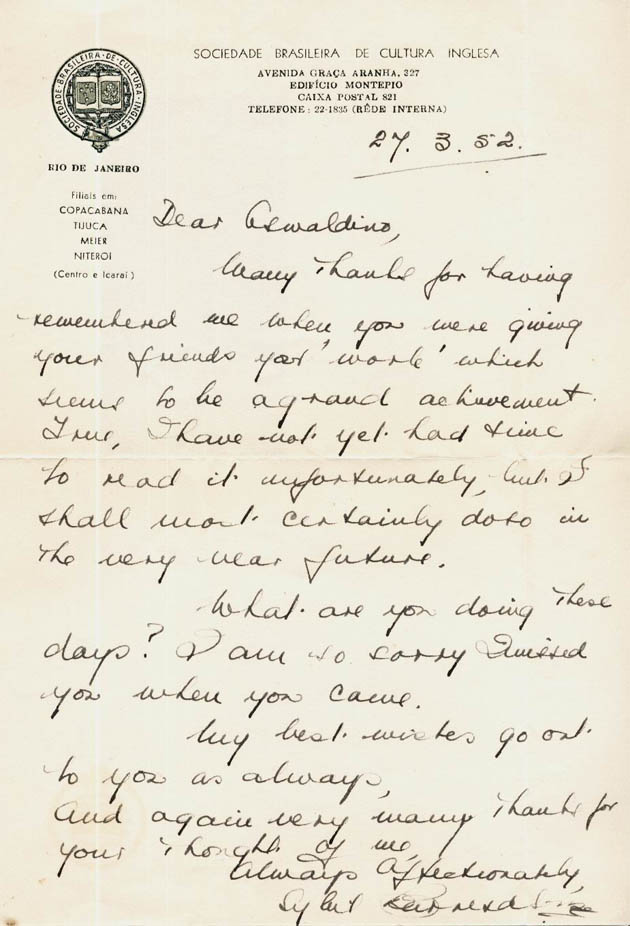 SOCIEDADE BRASILEIRA DE CULTURA INGLESA
AVENIDA GRAÇA ARANHA, 327
EDIFÍCIO MONTEPIO
CAIXA POSTAL 821
TELEFONE: 22-1835 (RÊDE INTERNA)
SOCIEDADE·BRASILEIRA·DE·CULTURA·INGLESA
RIO DE JANEIRO
Filiais em:
COPACABANA
TIJUCA
MEIER
NITEROI
(Centro e Icaraí)
27. 3. 52.
Dear Oswaldino,
Many thanks for having
remembered me when you were giving
your friends your 'work' which
seems to be a grand achievement.
True, I have not yet had time
to read it unfortunately, but I
shall most certainly do so in
the very near future.
What are you doing these
days? I am so sorry I missed
you when you came.
My best wishes go out
to you as always,
And again very many thanks for
your thought of me,
Always Affectionately,